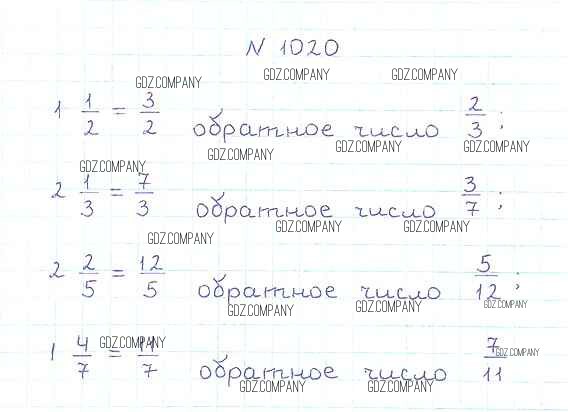 N 1020
GDZ.COMPANY GDZ.COMPANY GDZ.COMPANY
1 1/2 = 3/2 обратное число 2/3;
GDZ.COMPANY GDZ.COMPANY GDZ.COMPANY
GDZ.COMPANY
2 1/3 = 7/3 обратное число 3/7;
GDZ.COMPANY GDZ.COMPANY
GDZ.COMPANY
2 2/5 = 12/5 обратное число 5/12;
GDZ.COMPANY GDZ.COMPANY GDZ.COMPANY
GDZ.COMPANY GDZ.COMPANY
1 4/7 = 11/7 обратное число 7/11
GDZ.COMPANY GDZ.COMPANY